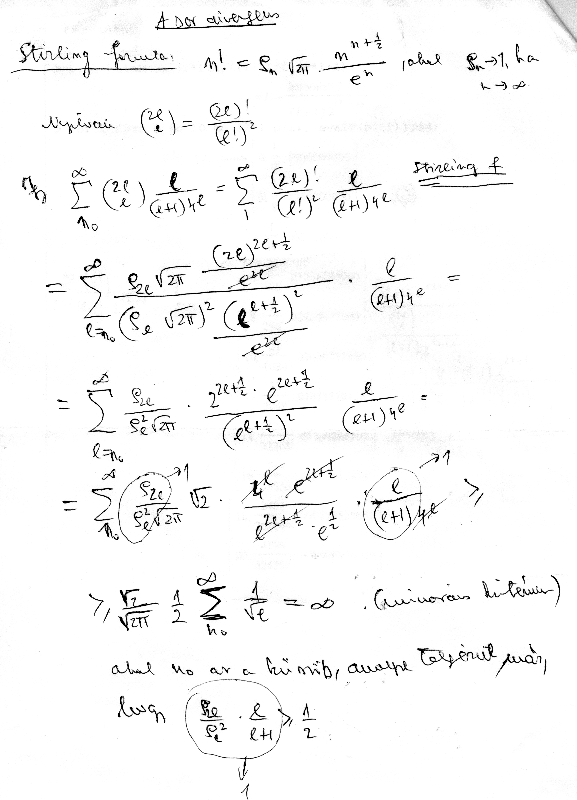 A sor divergens
Stirling formula: n! = ρ_n √2π · n^{n+1/2} / e^n , ahol ρ_n→1, ha n→∞
Nyilván (2l l) = (2l)! / (l!)^2
Így ∑_{n_0}^{∞} (2l l) l / (l+1)4^l = ∑_{1}^{∞} (2l)! / (l!)^2 · l / (l+1)4^l Stirling f
= ∑_{l=n_0}^{∞} ρ_{2l} √2π (2l)^{2l+1/2} / e^{2l} / (ρ_l √2π)^2 (l^{l+1/2})^2 / e^{2l} · l / (l+1)4^l =
= ∑_{l=n_0}^{∞} ρ_{2l} / ρ_l^2 √2π · 2^{2l+1/2} · l^{2l+1/2} / (l^{l+1/2})^2 · l / (l+1)4^l =
= ∑_{n_0}^{∞} ρ_{2l} / ρ_l^2 √2π →1 √2 · 4^l l^{2l+1/2} / l^{2l+1/2} · l^{1/2} · l / (l+1)4^l →1 ≥
≥ √2 / √2π · 1/2 ∑_{n_0}^{∞} 1/√l = ∞ . (minoráns kritérium)
ahol n_0 az a küszöb, amelyre teljesül már,
hogy ρ_{2l} / ρ_l^2 · l / l+1 ≥ 1/2
↓
1